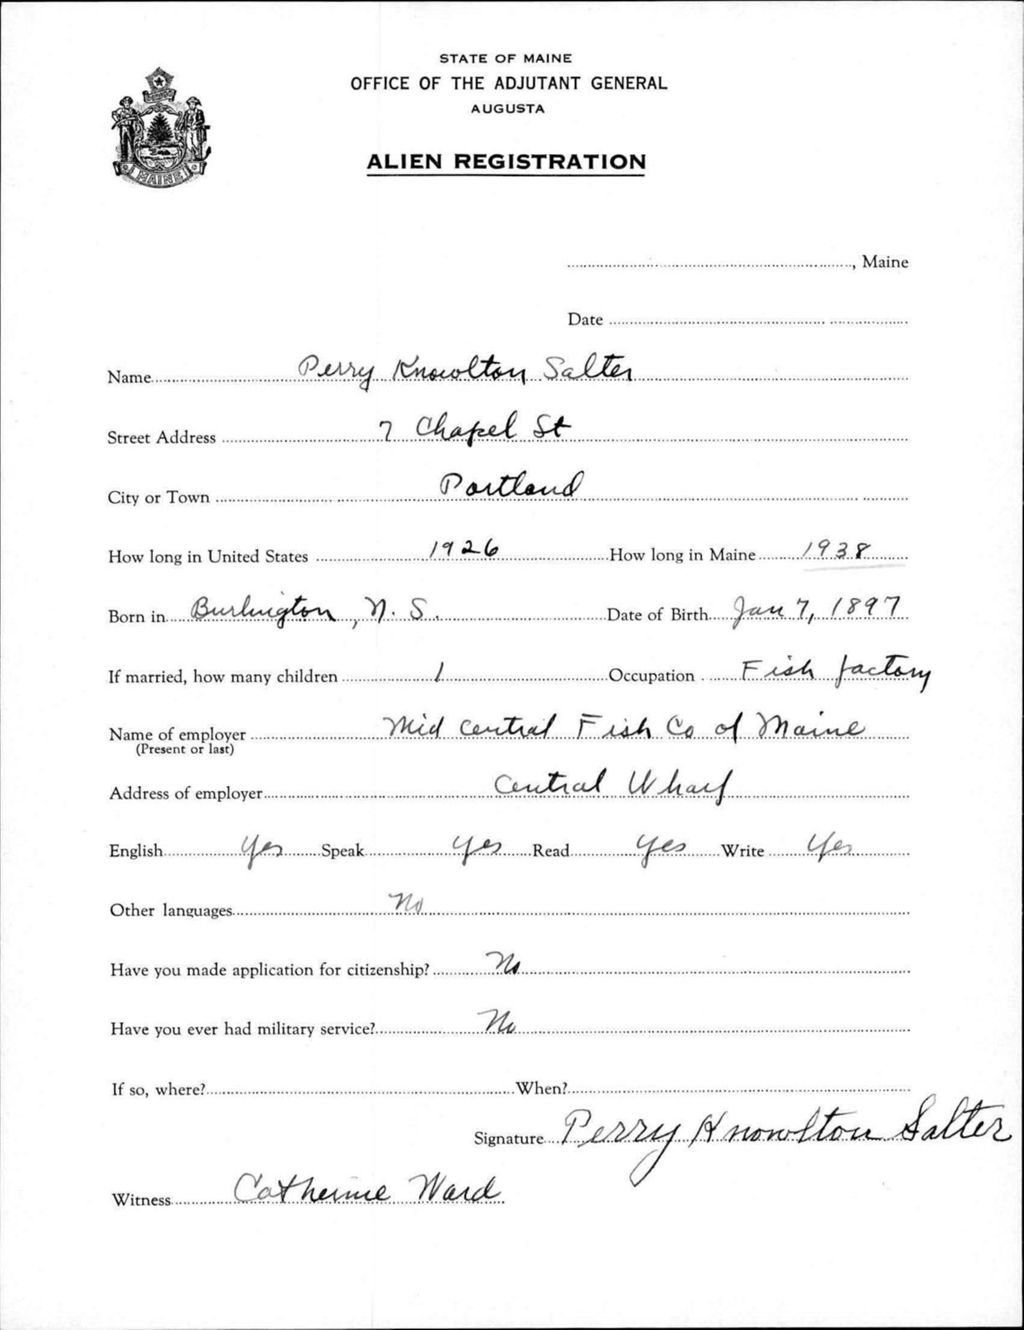 STATE OF MAINE
OFFICE OF THE ADJUTANT GENERAL
AUGUSTA
ALIEN REGISTRATION
MAINE
, Maine
Date
Name Perry Knowlton Salter
Street Address 7 Chapel St
City or Town Portland
How long in United States 1926 How long in Maine 1938
Born in Burlington, N. S. Date of Birth Jan 7, 1897
If married, how many children 1 Occupation Fish factory
Name of employer Mid Central Fish Co of Maine
(Present or last)
Address of employer Central Wharf
English Yes Speak Yes Read Yes Write Yes
Other languages No
Have you made application for citizenship? No
Have you ever had military service? No
If so, where? When?
Signature Perry Knowlton Salter
Witness Catherine Ward